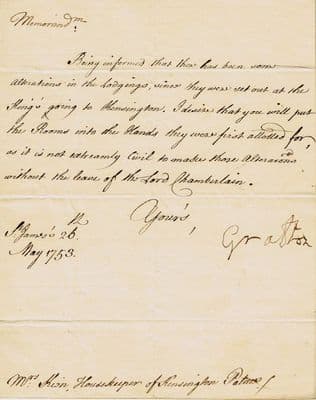 Memorandm.
Being informed that ther has been som
alterations in the Lodgings, since they were set out at the
King's going to Kensington. I desire that you will put
the Rooms into the Hands they were first allotted for,
as it is not extreamly Civil to make those Alterations
without the leave of the Lord Chamberlain.
Your's,
Grafton
St. James's 26th.
May 1753.
Mrs. Keen, Housekeeper of Kensington Palace